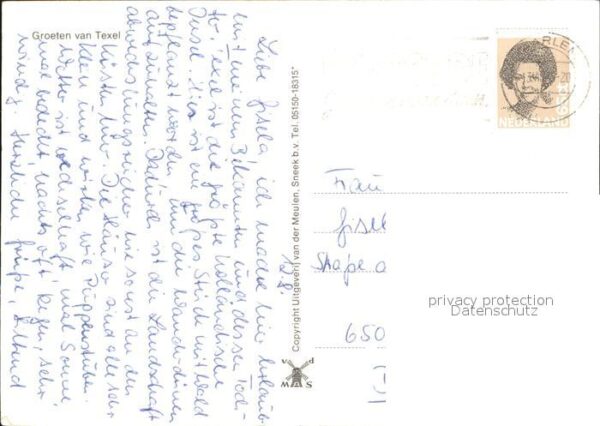 Groeten van Texel
12.8.
Liebe Gisela, ich mache hier Urlaub
mit meinem Bekannten und dessen Toch-
ter. Texel ist die größte holländische
Insel. Hier ist ein großes Stück mit Wald
bepflanzt worden um die Wanderdünen
aufzuhalten. Dadurch ist die Landschaft
abwechslungsreicher wie sonst an den
Küsten hier. Die Häuser sind alle sehr
klein und wirken wie Puppenstuben.
Wetter ist wechselhaft, mal Sonne
mal bedeckt, nachts oft Regen, sehr
windig. Herzliche Grüße,
Copyright Uitgeverij van der Meulen, Sneek b.v. Tel. 05150-18315*
v d
M S W
ARLE
NEDERLAND
Frau
Gisel
Shape a
650
privacy protection
Datenschutz